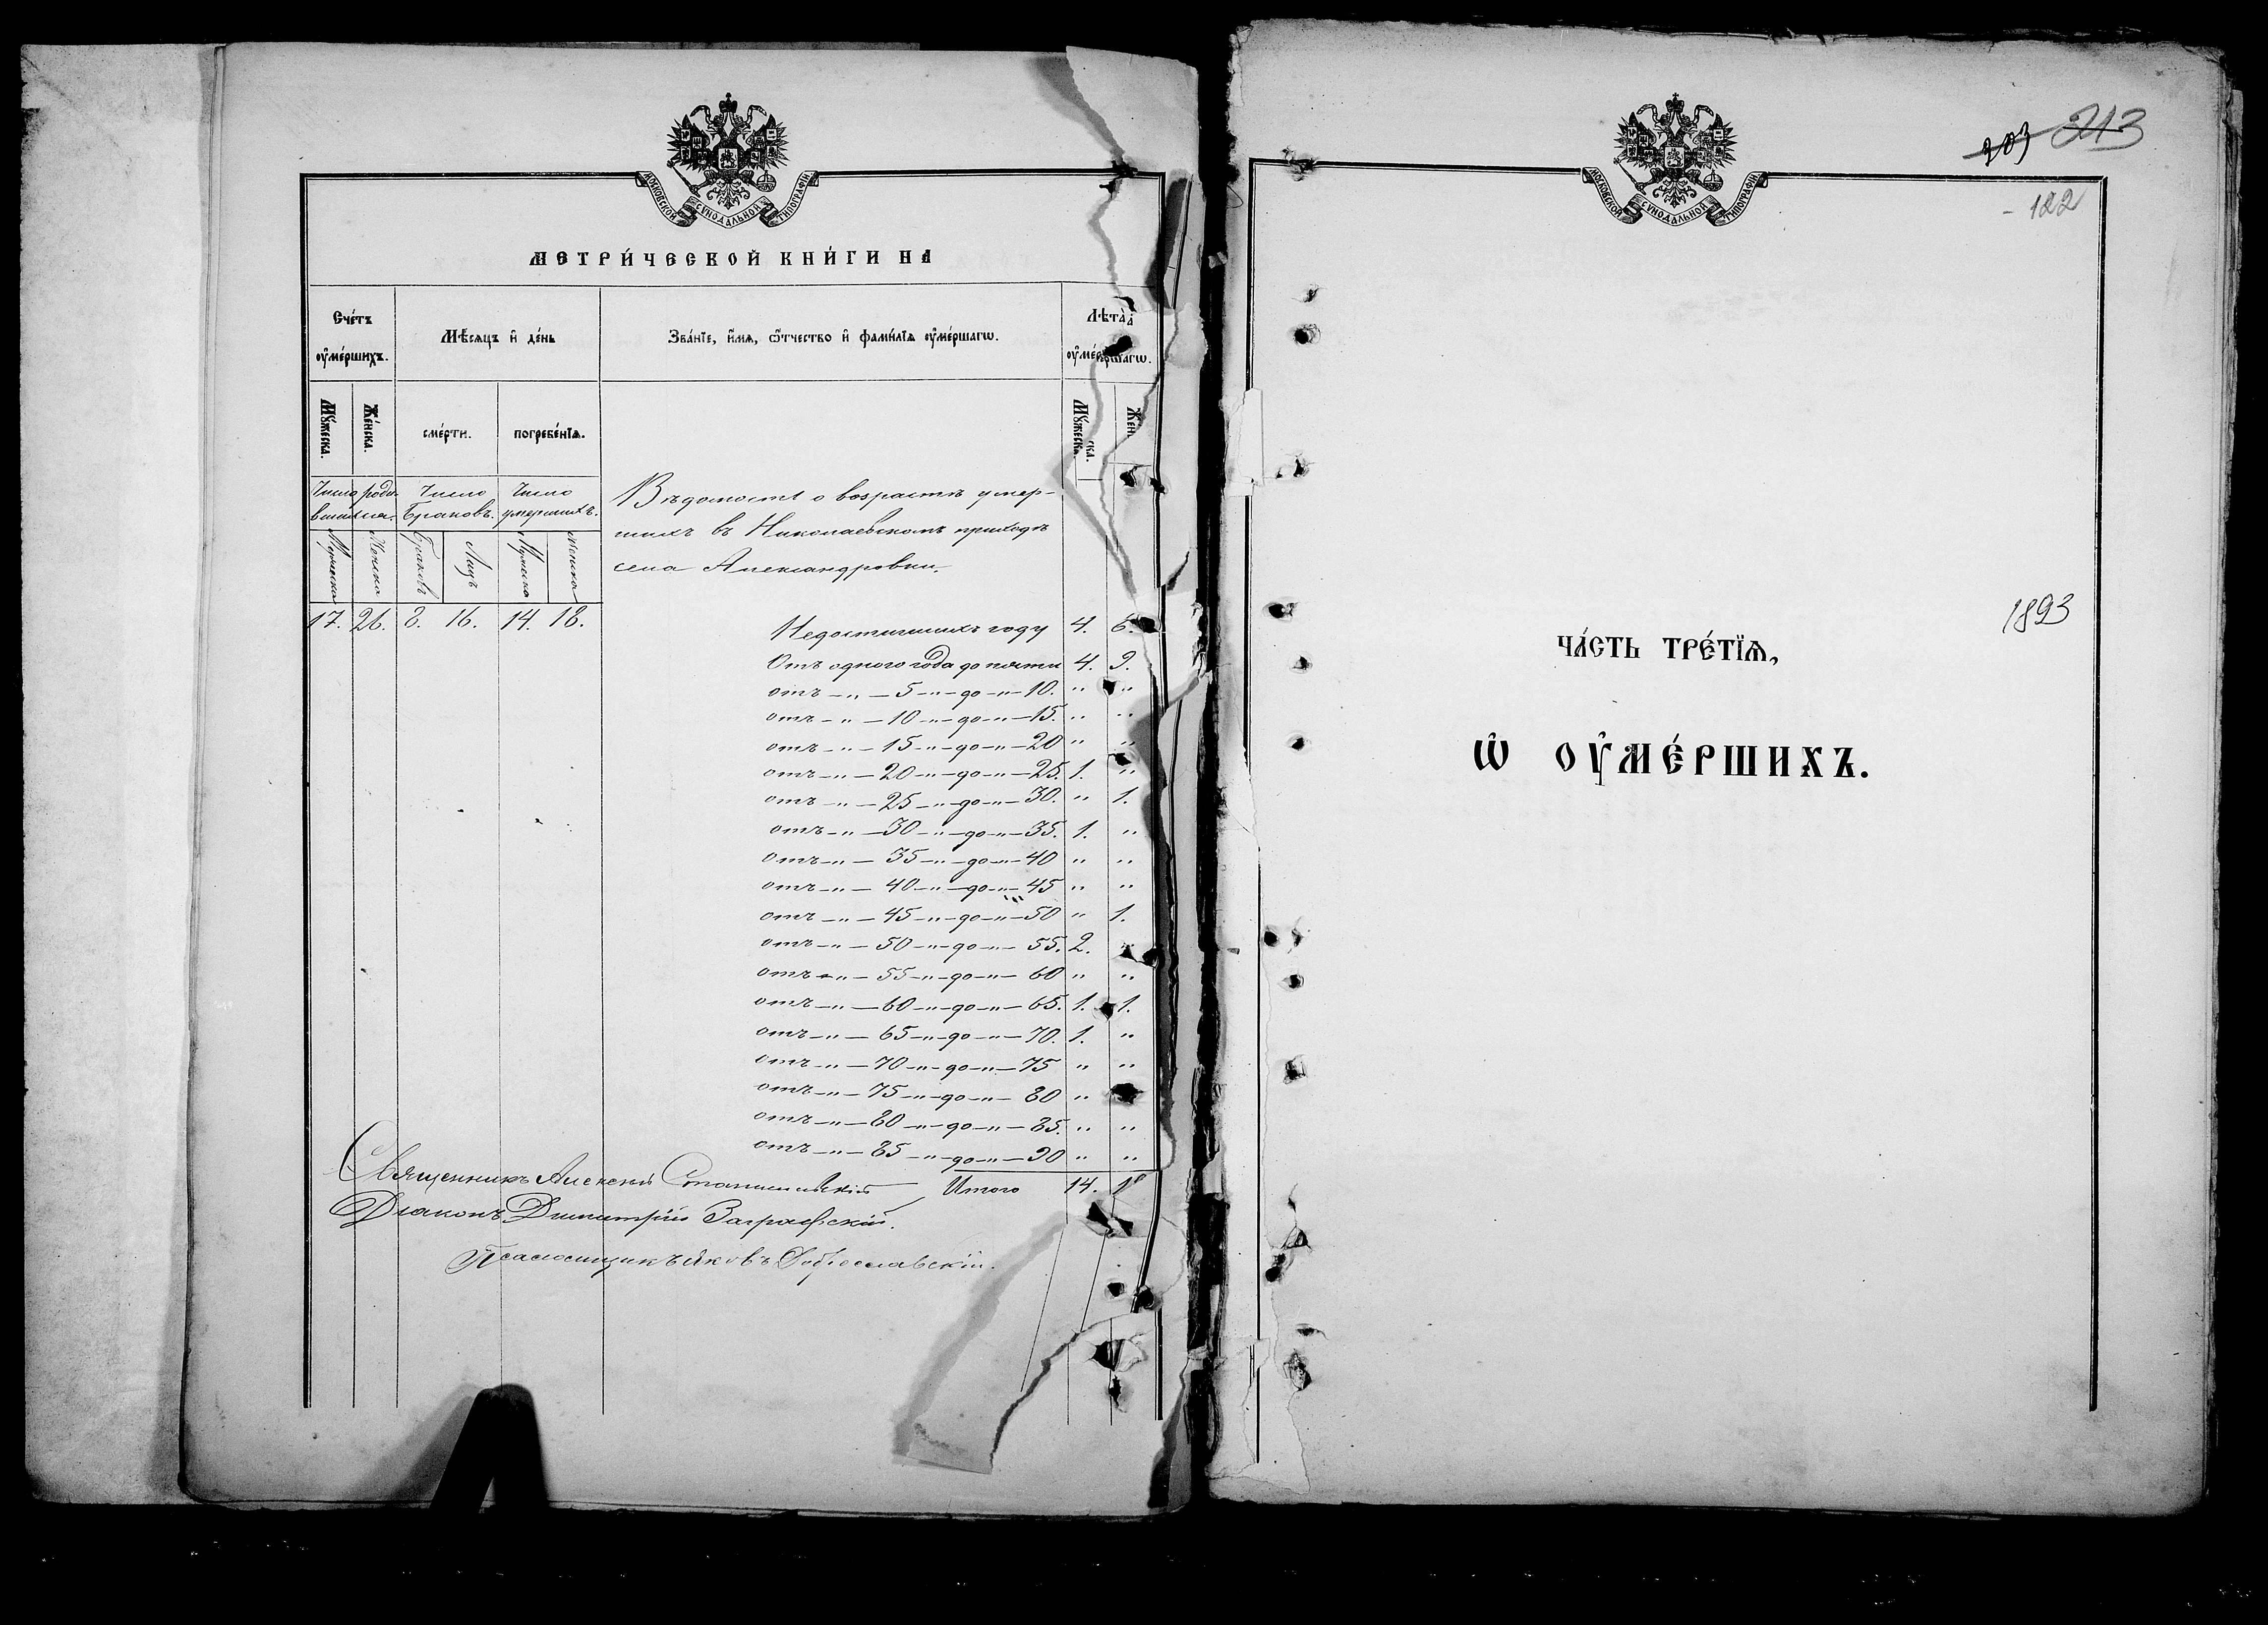 МОСКОВСКОЙ СѴНОДАЛЬНОЙ ТИПОГРАФІИ
МЕТРИ́ЧЕСКОЙ КНИ́ГИ НА
Сче́тъ оу҆ме́ршихъ.
Мѣ́сяцъ и҆ де́нь
Зва́нїе, и҆́мѧ, ѻ҆́тчество и҆ фамн́лїѧ оу҆ме́ршагѡ.
Лѣта̀ оу҆ме́ршагѡ.
Мꙋ́жеска.
Же́нска.
сме́рти.
погребе́нїѧ.
Мꙋ́жеска.
Жен
Число родившихся.
Число браковъ.
Число умершихъ.
Мужеска
Женска
Браковъ
Лицъ
Мужска
Женска
17. 26. 8. 16. 14. 18.
Вѣдомость о возрастѣ умер-
шихъ въ Николаевскомъ приходѣ
села Александровки.
Недостигшихъ году 4. 6.
Отъ одного года до пяти 4. 9.
отъ — „ — 5 — „ — до — „ — 10. „ „
отъ — „ — 10 — „ — до — „ — 15. „ „
отъ — „ — 15 — „ — до — „ — 20 „ „
отъ — „ — 20 — „ — до — „ — 25. 1. „
отъ — „ — 25 — „ — до — „ — 30. „ 1.
отъ — „ — 30 — „ — до — „ — 35. 1. „
отъ — „ — 35 — „ — до — „ — 40 „ „
отъ — „ — 40 — „ — до — „ — 45 „ „
отъ — „ — 45 — „ — до — „ — 50 „ 1.
отъ — „ — 50 — „ — до — „ — 55. 2. „
отъ — „ — 55 — „ — до — „ — 60 „ „
отъ — „ — 60 — „ — до — „ — 65. 1. 1.
отъ — „ — 65 — „ — до — „ — 70. 1. „
отъ — „ — 70 — „ — до — „ — 75 „ „
отъ — „ — 75 — „ — до — „ — 80 „
отъ — „ — 80 — „ — до — „ — 85. „ „
отъ — „ — 85 — „ — до — „ — 90 „ „
Итого 14. 18
Священникъ Алексій
Діаконъ Димитрій Заграфскій.
Псаломщикъ Яковъ Добославскій.
203 213
МОСКОВСКОЙ СѴНОДАЛЬНОЙ ТИПОГРАФІИ
- 122
1893
ЧА́СТЬ ТРЕ́ТЇѦ,
Ѡ҆ ОУ҆МЕ́РШИХЪ.